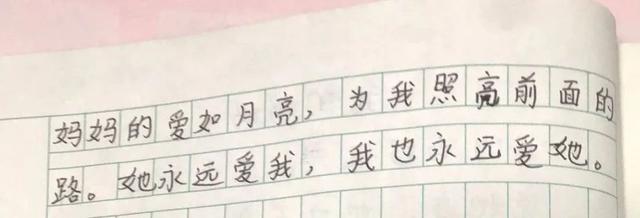 妈妈的爱如月亮，为我照亮前面的
路。她永远爱我，我也永远爱她。